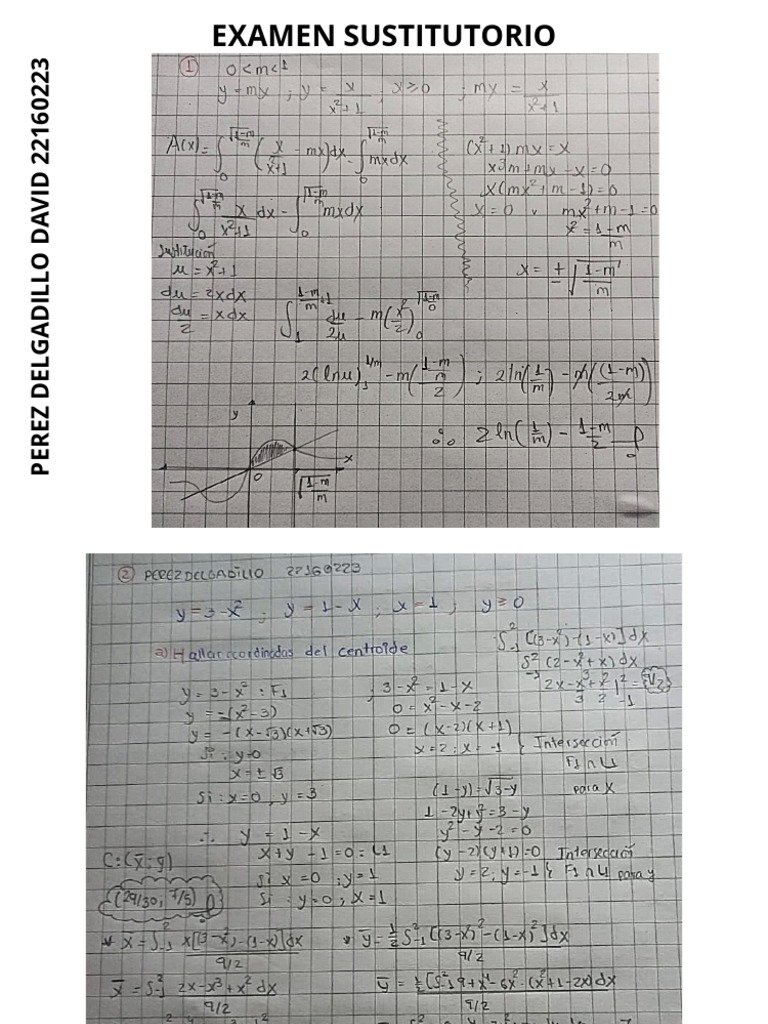 EXAMEN SUSTITUTORIO
PEREZ DELGADILLO DAVID 22160223
① 0 < m < 1
y = mx ; y = x/(x²+1) ; x ≥ 0 ; mx = x/(x²+1)
A(x) = ∫₀^√((1-m)/m) (x/(x²+1) - mx) dx - ∫₀^√((1-m)/m) mx dx
∫₀^√((1-m)/m) x/(x²+1) dx - ∫₀^√((1-m)/m) mx dx
Sustitución
u = x²+1
du = 2x dx
du/2 = x dx
∫₁^((1-m)/m+1) du/2u - m(x²/2)₀^√((1-m)/m)
(x²+1) mx = x
x³m + mx - x = 0
x(mx² + m - 1) = 0
x = 0 v mx² + m - 1 = 0
x² = (1-m)/m
x = ± √((1-m)/m)
2(ln u)₁^(1/m) - m(((1-m)/m)/2) ; 2 ln(1/m) - m((1-m)/2m)
∴ 2 ln(1/m) - (1-m)/2
y
x
0
√((1-m)/m)
② PEREZ DELGADILLO 22160223
y = 3 - x² ; y = 1 - x ; x = 1 ; y ≥ 0
a) Hallar coordinadas del centroide
∫₋₁² [(3-x²) - (1-x)] dx
∫₋₁² (2 - x² + x) dx
2x - x³/3 + x²/2 |₋₁² = 9/2
y = 3 - x² : F1
y = -(x² - 3)
y = -(x-√3)(x+√3)
Si : y = 0
x = ± √3
Si : x = 0 , y = 3
; 3 - x² = 1 - x
0 = x² - x - 2
0 = (x-2)(x+1)
x = 2 ; x = -1 } Intersección
F1 ∩ L1
para x
(1-y) = √3-y
1 - 2y + y² = 3 - y
y² - y - 2 = 0
(y-2)(y+1) = 0 Intersección
y = 2 ; y = -1 } F1 ∩ L1 para y
∴ y = 1 - x
x + y - 1 = 0 = L1
Si x = 0 ; y = 1
Si : y = 0 , x = 1
C: (x̄ ; ȳ)
(29/30, 7/5)
* x̄ = ∫₋₁² x[(3-x²) - (1-x)] dx / 9/2
* ȳ = 1/2 ∫₋₁² [(3-x²)² - (1-x)²] dx / 9/2
x̄ = ∫₋₁² 2x - x³ + x² dx / 9/2
ȳ = 1/2 [∫₋₁² 9 + x⁴ - 6x² - (x² + 1 - 2x) dx / 9/2